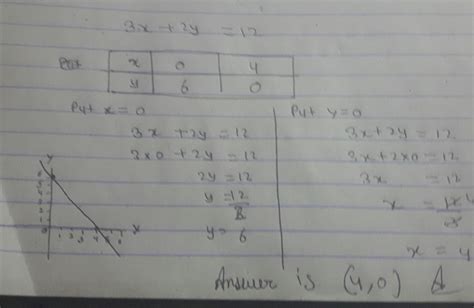 3x + 2y = 12
x 0 4
y 6 0
Put x = 0
3x + 2y = 12
3x0 + 2y = 12
2y = 12
y = 12/2
y = 6
Put y = 0
3x + 2y = 12
3x + 2x0 = 12
3x = 12
x = 12/3 4
x = 4
y
x
0
Answer is (4,0)